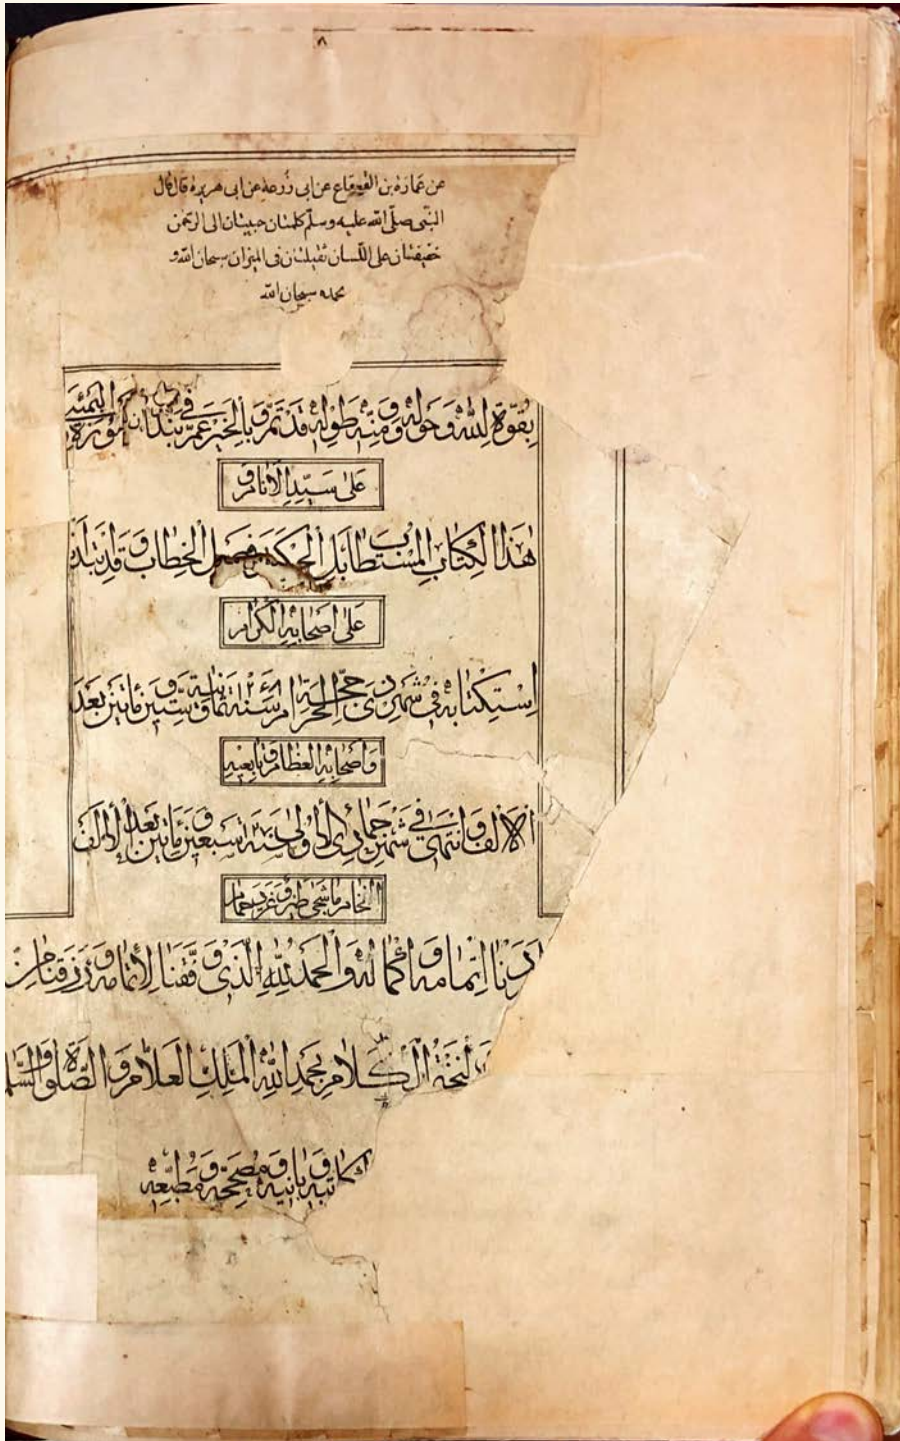 ٨
عن عمارة بن القعقاع عن ابى زرعة عن ابى هريرة قال قال
النبى صلى الله عليه وسلم كلمتان حبيبتان الى الرحمن
خفيفتان على اللسان ثقيلتان فى الميزان سبحان الله و
بحمده سبحان الله
بِقُوَّةِ اللهِ وَحَوْلِهِ وَمَنِّهِ وَطَوْلِهِ قَدْ تَمَّ وَبِالْخَيْرِ عَمَّ فِي بَنْدَرِ
عَلٰى سَيِّدِ الْاَنَامِ وَ
هٰذَا الْكِتَابُ الْمُسْتَطَابُ بَلِ الْحِكْمَةُ وَفَصْلُ الْخِطَابِ وَقَدِ ابْتَدَأَ
عَلٰى اَصْحَابِهِ الْكِرَامِ
اِسْتِكْتَابُهُ فِى شَهْرِ ذِى الْحِجَّةِ الْحَرَامِ سَنَةَ ثَمَانِيَةٍ وَسِتِّينَ وَمِأَتَيْنِ بَعْدَ
وَاَصْحَابِهِ الْعِظَامِ وَتَابِعِيهِ
الْاَلْفِ وَانْتَهٰى فِي شَهْرِ جُمَادِى الْاُولٰى سَنَةَ ١٢٧٠ سَبْعِينَ وَمِأَتَيْنِ بَعْدَ الْاَلْفِ
مَا شَجٰى طَيْرٌ وَغَرَّدَ حَمَام
اِتْمَامَهُ وَاِكْمَالَهُ وَالْحَمْدُ لِلّٰهِ الَّذِى وَفَّقَنَا لِاِتْمَامِهِ وَرَزَقَنَا مِنْ
الْكَلَامِ بِحَمْدِ اللهِ الْمَلِكِ الْعَلَّامِ وَالصَّلٰوةُ وَالسَّلَا
كَاتِبِهِ وَبَانِيهِ وَمُصَحِّحِهِ وَمُطَبِّعِهِ